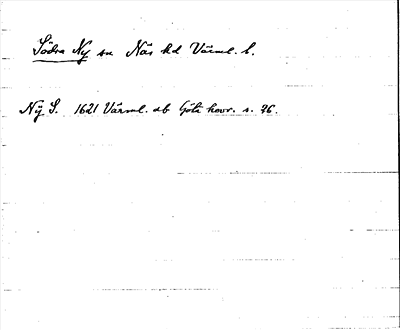 Södra Ny sn Näs hd Värml. l.
Ny S. 1621 Värml. äb Göta hovr. s. 96.